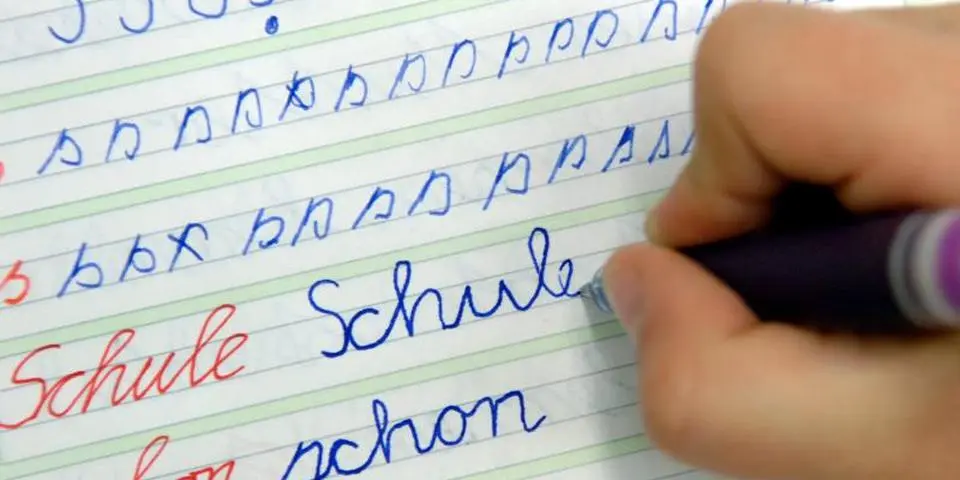 s s s s s s s s s s s s
s s s s s s s s s s s s
Schule Schule
schon